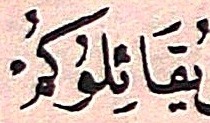 يُقَاتِلُوكُمْ